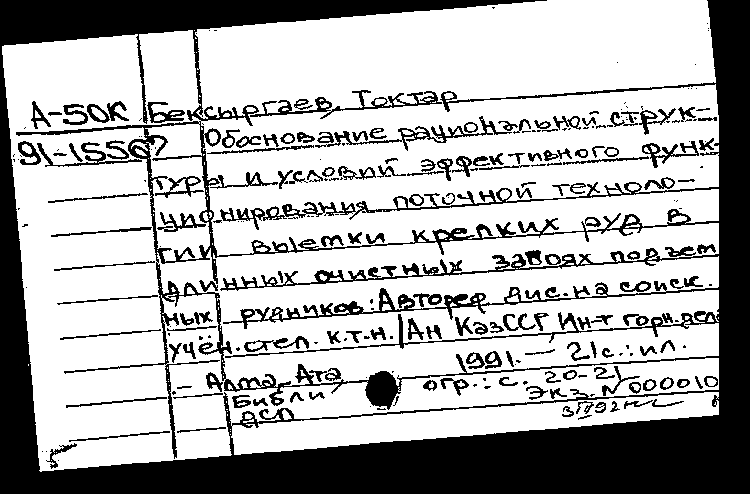 А-50К Бексыргаев, Токтар
91-15567 Обоснование рациональной струк-
туры и условий эффективного функ-
ционирования поточной техноло-
гии выемки крепких руд в
длинных очистных забоях подзем
ных рудников: Автореф дис. на соиск.
учён. степ. к.т.н. / Ан КазССР, Ин-т горн. дела
.- Алма-Ата, 1991. — 21с.: ил.
Библи огр.: с. 20-21
ДСП Экз. N 000010